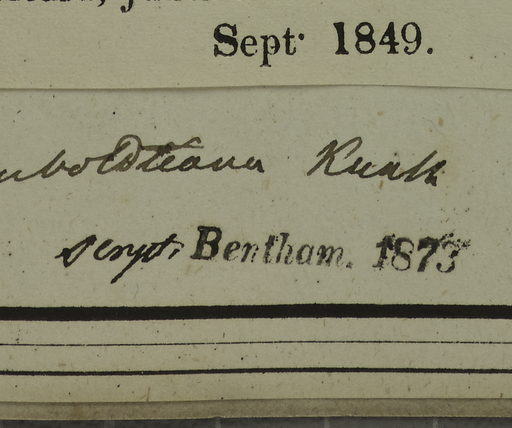 Sept. 1849.
umboldtiana Kunth
scrips. Bentham. 1873